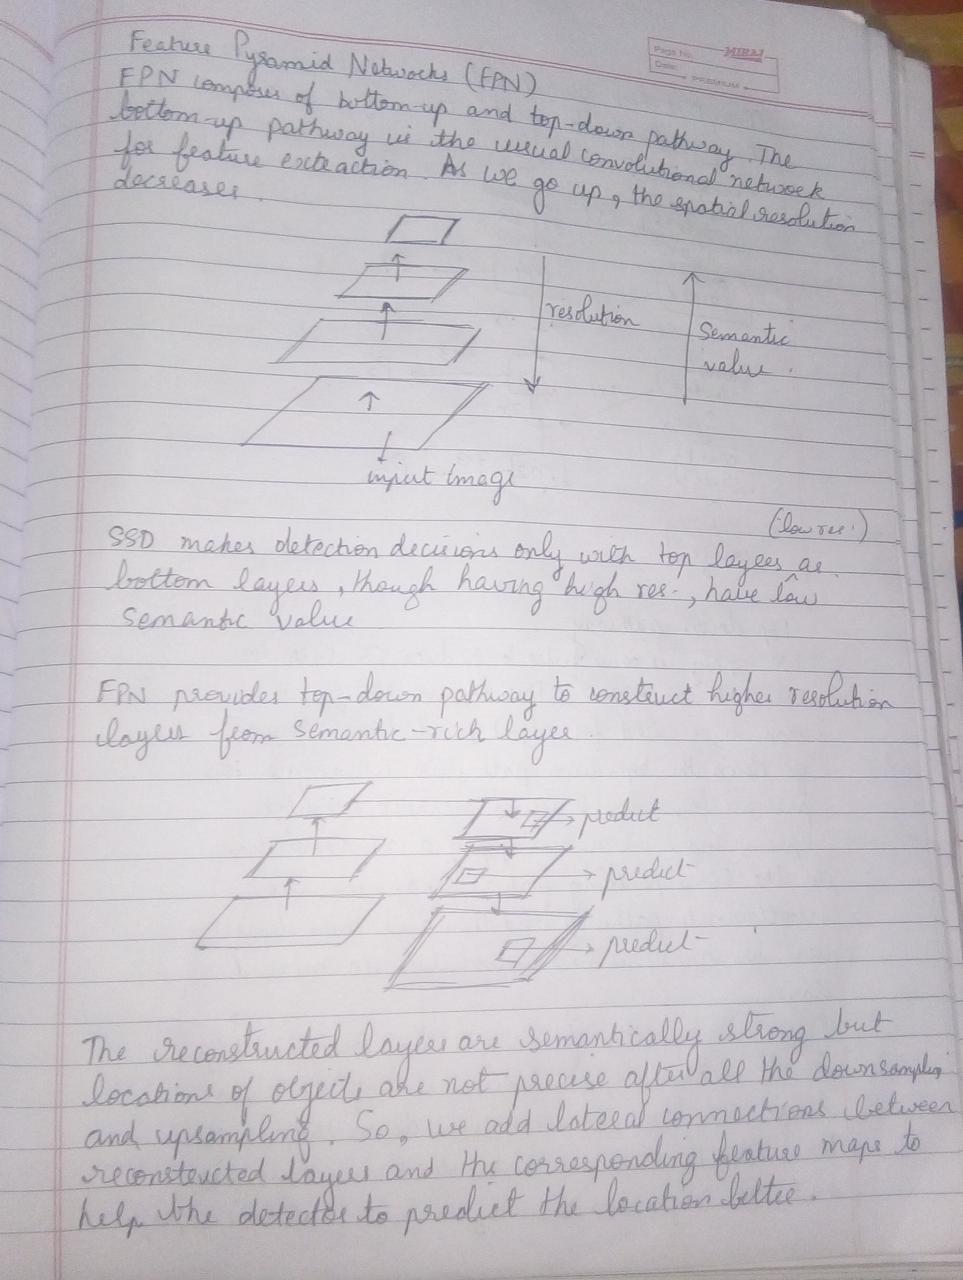 Page No.
MIRAJ
Date:
PREMIUM
Feature Pyramid Networks (FPN)
FPN composes of bottom-up and top-down pathway. The
bottom-up pathway is the usual convolutional network
for feature extraction. As we go up, the spatial resolution
decreases.
resolution
Semantic
value.
input image
(low res.)
SSD makes detection decisions only with top layers as
bottom layers, though having high res., have low
semantic value
FPN provides top-down pathway to construct higher resolution
layers from semantic-rich layer.
predict
predict
predict
The reconstructed layers are semantically strong but
locations of objects are not precise after all the downsampling
and upsampling. So, we add lateral connections between
reconstructed layers and the corresponding feature maps to
help the detector to predict the location better.